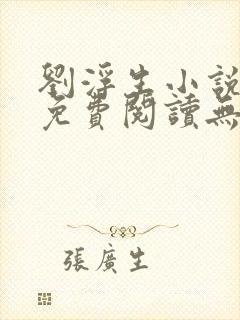 劉浮生小說
免費閱讀無
張廣生